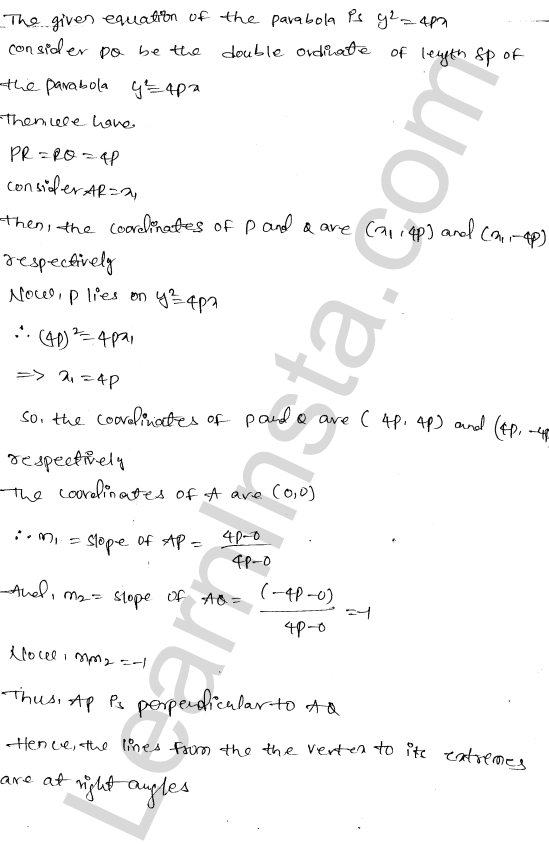 The given equation of the parabola is y² = 4px
consider PQ be the double ordinate of length 8p of
the parabola y² = 4px
Then we have
PR = RQ = 4p
consider AR = x₁
Then, the coordinates of P and Q are (x₁, 4p) and (x₁, -4p)
respectively
Now, p lies on y² = 4px
∴ (4p)² = 4px₁
=> x₁ = 4p
so, the coordinates of p and Q are (4p, 4p) and (4p, -4p
respectively
The coordinates of A are (0,0)
∴ m₁ = slope of AP = (4p-0)/(4p-0)
And, m₂ = slope of AQ = (-4p-0)/(4p-0) = -1
Now, m₁m₂ = -1
Thus, Ap is perpendicular to AQ
Hence, the lines from the the vertex to its extremes
are at right angles
LearnInsta.com